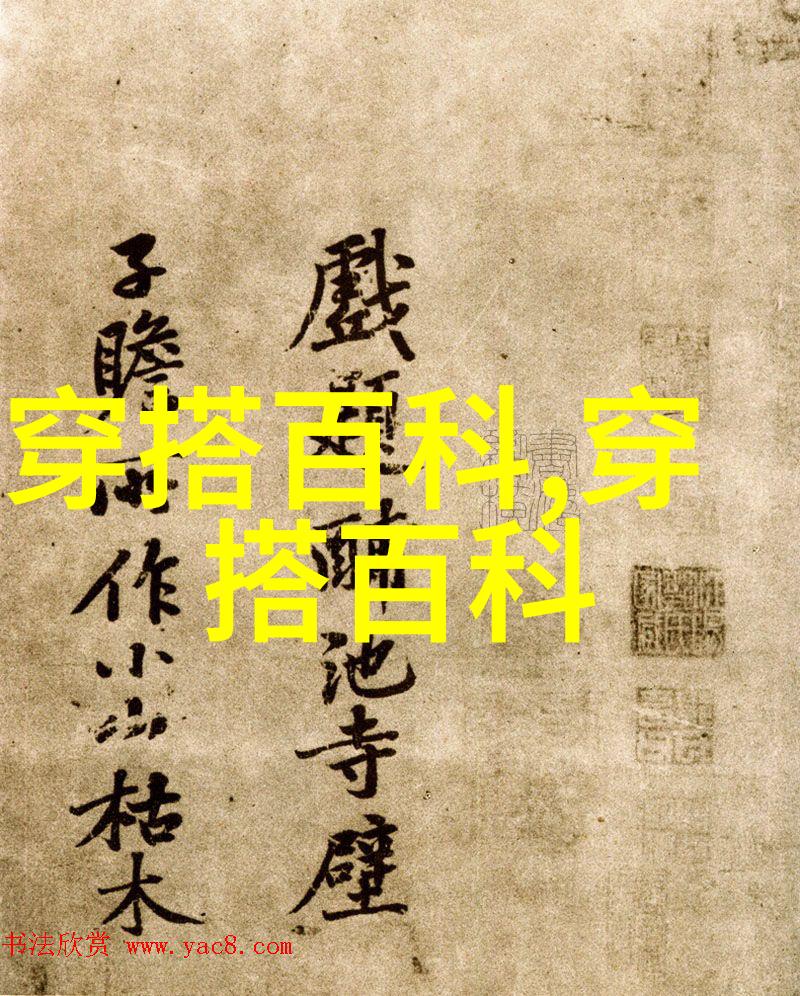 穿搭百科,穿
搭百科
戲題酺池寺壁
子瞻所作小山枯木
书法欣赏 www.yac8.com